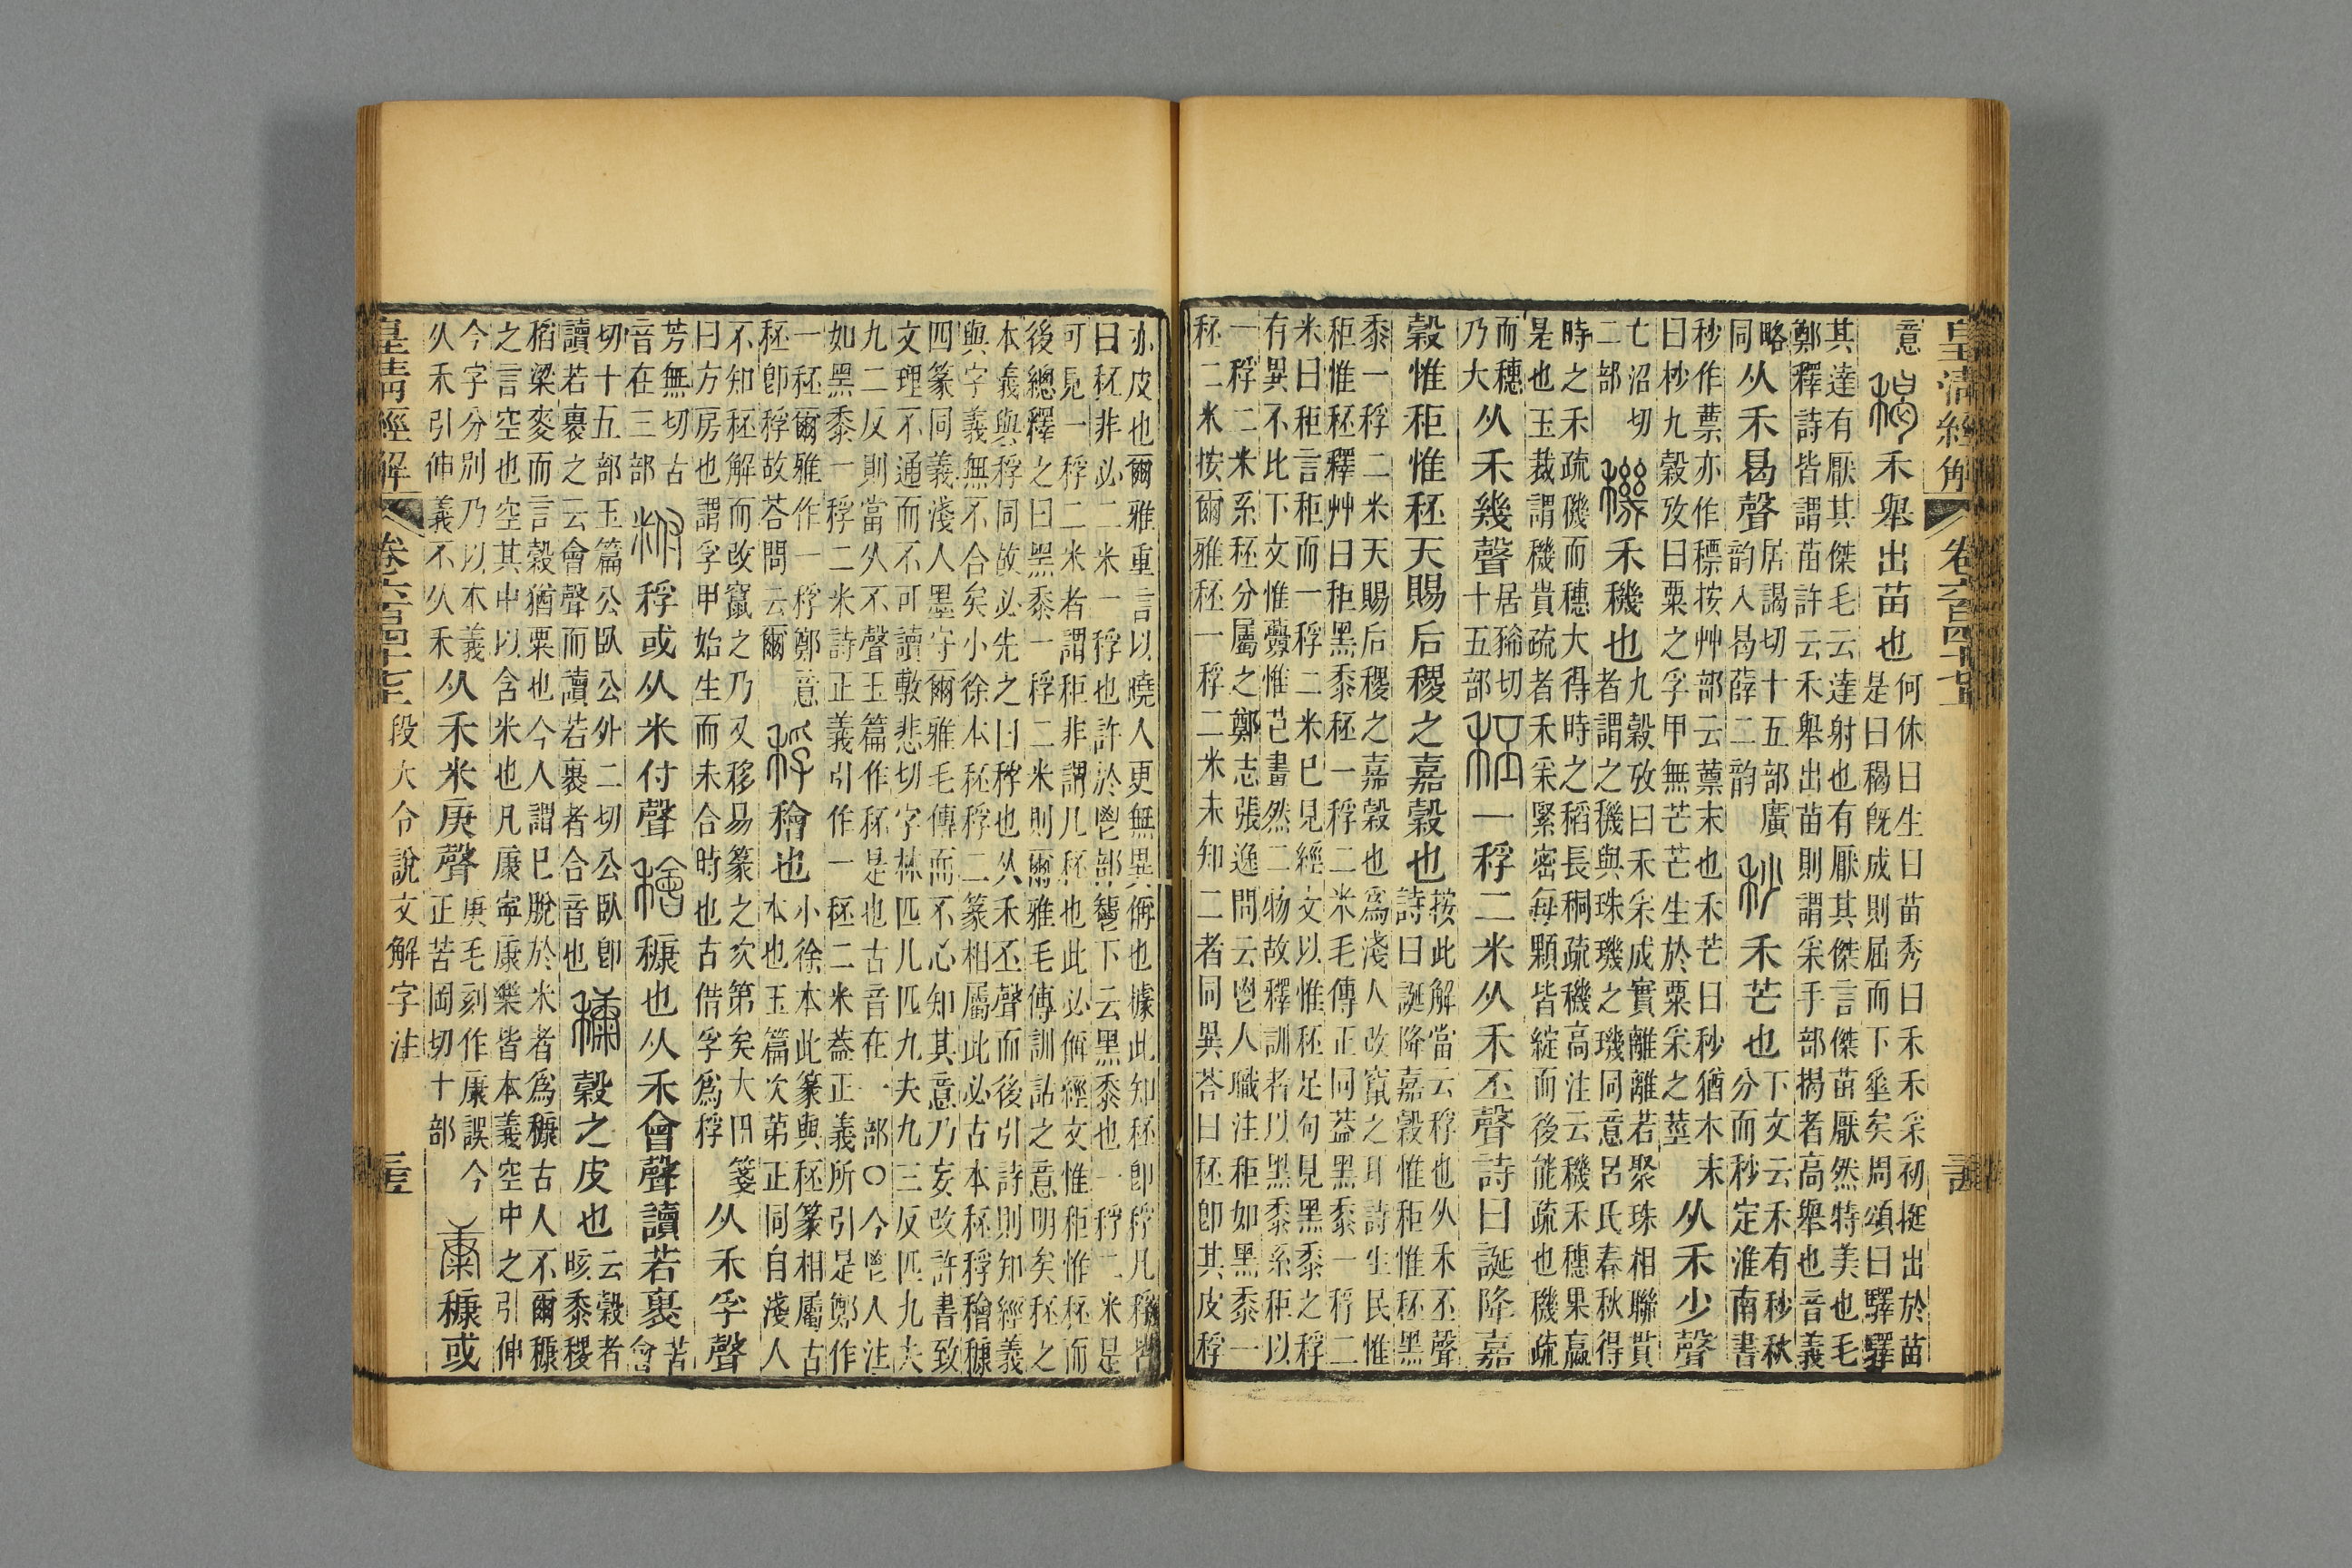 皇清經解 卷六百四十七上
意 䅥 禾舉出苗也 何休曰生曰苗秀曰禾禾采初挺出於苗
是曰䅥旣成則屈而下垂矣周頌曰驛驛
其達有厭其傑毛云達射也有厭其傑言傑苗厭然特美也毛
鄭釋詩皆謂苗許云禾舉出苗則謂采手部揭者高舉也音義
略同 从禾曷聲 居謁切十五部廣韵入曷薛二韵 秒 禾芒也 下文云禾有秒秋
分而秒定淮南書
秒作蔈亦作標按艸部云蔈末也禾芒曰秒猶木末
曰杪九穀攷曰粟之孚甲無芒芒生於粟采之莖 从禾少聲
亡沼切二部 穖 禾穖也 九穀攷曰禾采成實離離若聚珠相聯貫
者謂之穖與珠璣之璣同意呂氏春秋得
時之禾疏穖而穗大得時之稻長秱疏穖高注云穖禾穗果蠃
是也玉裁謂穖貴疏者禾采緊密每顆皆綻而後能疏也穖疏
而穗乃大 从禾幾聲 居豨切十五部 秠 一稃二米从禾丕聲詩曰誕降嘉
穀惟秬惟秠天賜后稷之嘉穀也 按此解當云稃也从禾丕聲
詩曰誕降嘉穀惟秬惟秠黑
黍一稃二米天賜后稷之嘉穀也爲淺人改竄之耳詩生民惟
秬惟秠釋艸曰秬黑黍秠一稃二米毛傳正同葢黑黍一稃二
米曰秬言秬而一稃二米已見經文以惟秠足句見黑黍之稃
有異不比下文惟虋惟芑畫然二物故釋訓者以黑黍系秬以
一稃二米系秠分屬之鄭志張逸問云鬯人職注秬如黑黍一
秠二米按爾雅秠一稃二米未知二者同異荅曰秠卽其皮稃
亦皮也爾雅重言以曉人更無異偁也據此知秠卽稃凡稃皆
曰秠非必二米一稃也許於鬯部下云黑黍也一稃二米是
可見一稃二米者謂秬非謂凡秠也此必偁經文惟秬惟秠而
後總釋之曰黑黍一稃二米則爾雅毛傳訓詁之意明矣秠之
本義與稃同故必先之曰稃也从禾丕聲而後引詩則知經義
與字義無不合矣小徐本秠稃二篆相屬此必古本秠稃䆐穅
四篆同義淺人墨守爾雅毛傳而不心知其意乃妄改許書致
文理不通而不可讀敷悲切字林匹几匹九夫九三反匹九夫
九二反則當从不聲玉篇作秠是也古音在一部○今鬯人注
如黑黍一稃二米詩正義引作一秠二米葢正義所引是鄭作
一秠爾雅作一稃鄭意秠卽稃故荅問云爾 稃 䆐也 小徐本此篆與秠篆相屬古
本也玉篇次第正同自淺人
不知秠解而改竄之乃又移易篆之次第矣大田箋
曰方房也謂孚甲始生而未合時也古借孚爲稃 从禾孚聲
芳無切古音在三部 䊇 稃或从米付聲 䆐 穅也从禾會聲讀若裹 苦會
切十五部玉篇公臥公外二切公臥卽
讀若裹之云會聲而讀若裹者合音也 穅 穀之皮也 云穀者晐黍稷
稻粱麥而言穀猶粟也今人謂已脫於米者爲穅古人不爾穅
之言空也空其中以含米也凡康寧康樂皆本義空中之引伸
今字分別乃以本義从禾引伸義不从禾 从禾米庚聲 庚毛刻作康誤今
正苦岡切十部 康 穅或
皇清經解 卷六百四十七上 段大令說文解字注